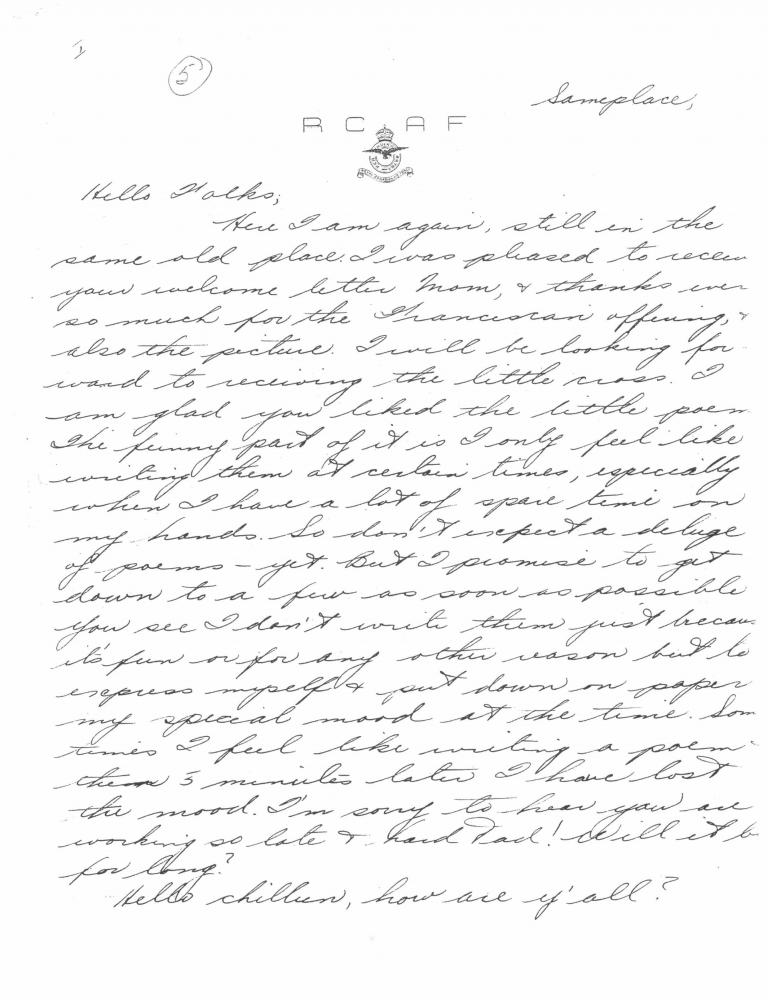 1
5
Sameplace,
R C A F
Hello Folks;
Here I am again, still in the
same old place. I was pleased to receiv
your welcome letter Mom, & thanks ever
so much for the Franciscan offering, &
also the picture. I will be looking for-
ward to receiving the little cross. I
am glad you liked the little poem
The funny part of it is I only feel like
writing them at certain times, especially
when I have a lot of spare time on
my hands. So don't expect a deluge
of poems - yet. But I promise to get
down to a few as soon as possible
You see I don't write them just becaus
it's fun or for any other reason but to
express myself & put down on paper
my special mood at the time. Som
times I feel like writing a poem
then 5 minutes later I have lost
the mood. I'm sorry to hear you are
working so late & hard Dad! Will it b
for long?
Hello chillun, how are y'all?